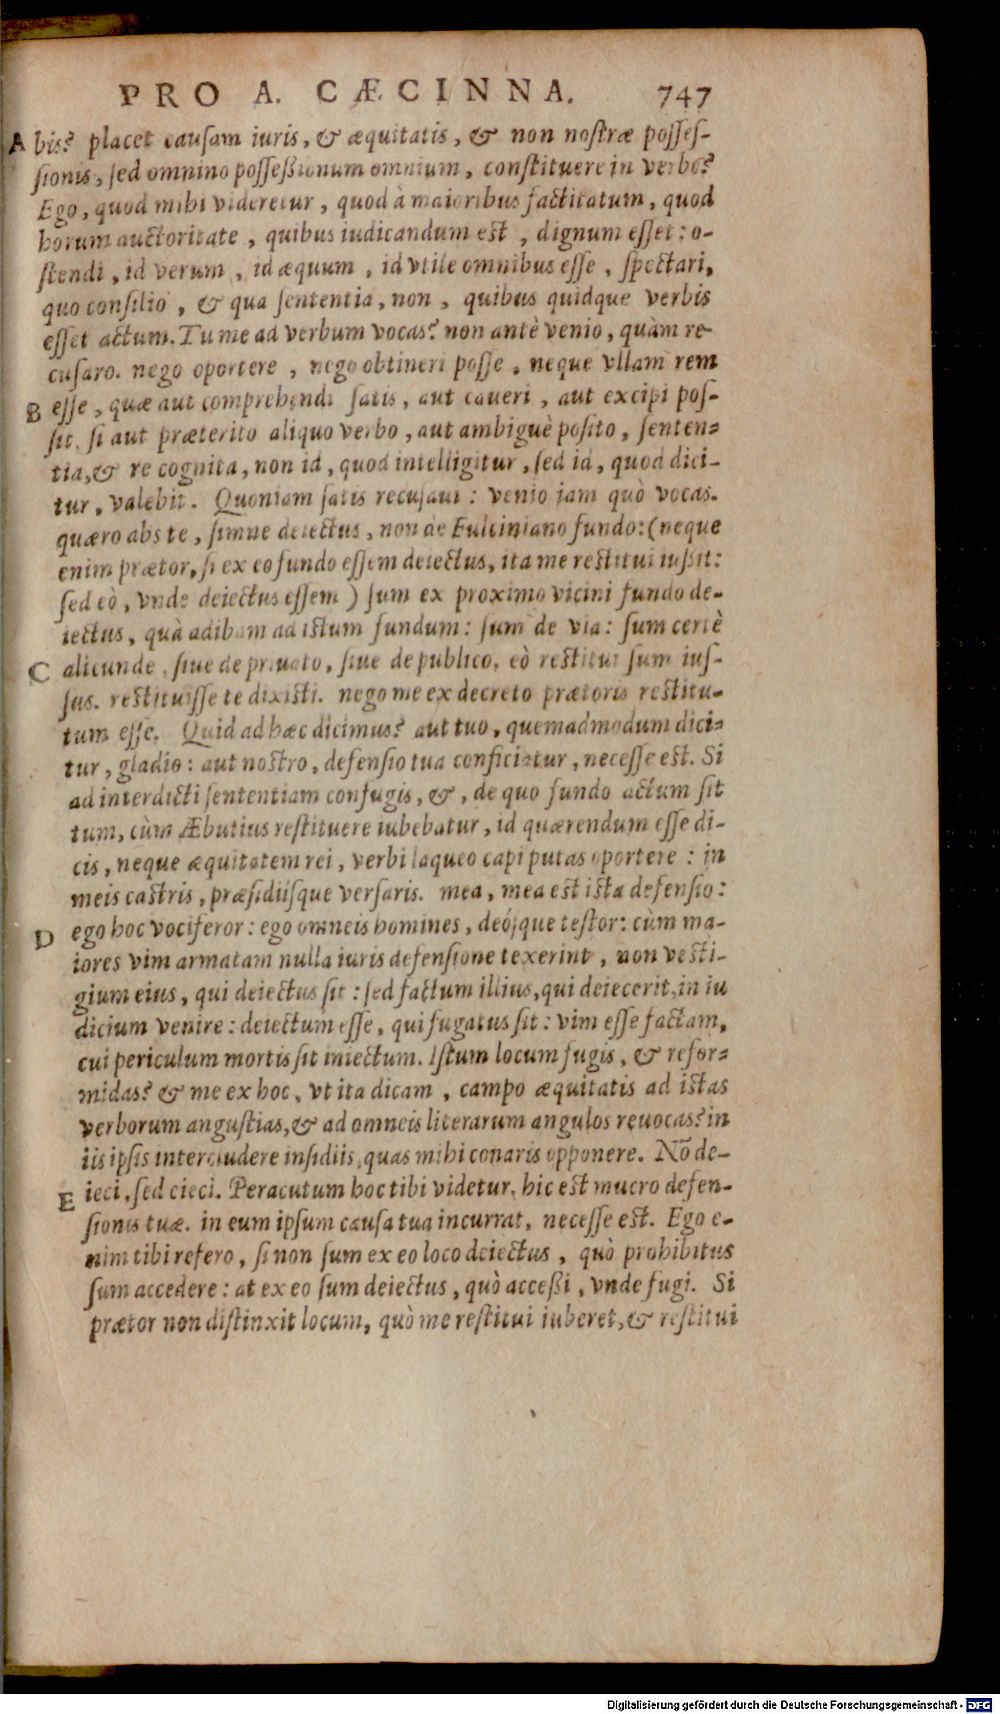 PRO A. CÆCINNA. 747
A bis? placet causam iuris, & æquitatis, & non nostræ posses-
sionis, sed omnino posseßionum omnium, constituere in verbo?
Ego, quod mihi videretur, quod à maioribus factitatum, quod
horum auctoritate, quibus iudicandum est, dignum esset: o-
stendi, id verum, id æquum, id vtile omnibus esse, spectari,
quo consilio, & qua sententia, non, quibus quidque verbis
esset actum. Tu me ad verbum vocas? non antè venio, quàm re-
cusaro. nego oportere, nego obtineri posse, neque vllam rem
B esse, quæ aut comprehendi satis, aut caueri, aut excipi pos-
sit, si aut præterito aliquo verbo, aut ambiguè posito, senten-
tia, & re cognita, non id, quod intelligitur, sed id, quod dici-
tur, valebit. Quoniam satis recusaui: venio iam quò vocas.
quæro abs te, simne deiectus, non de Fulciniano fundo: (neque
enim prætor, si ex eo fundo essem deiectus, ita me restitui iußit:
sed eò, vnde deiectus essem) sum ex proximo vicini fundo de-
iectus, quà adibam ad istum fundum: sum de via: sum certè
C alicunde, siue de priuato, siue de publico. eò restitui sum ius-
sus. restituisse te dixisti. nego me ex decreto prætoris restitu-
tum esse. Quid ad hæc dicimus? aut tuo, quemadmodum dici-
tur, gladio: aut nostro, defensio tua conficiatur, necesse est. Si
ad interdicti sententiam confugis, &, de quo fundo actum sit
tum, cùm Æbutius restituere iubebatur, id quærendum esse di-
cis, neque æquitatem rei, verbi laqueo capi putas oportere: in
meis castris, præsidiisque versaris. mea, mea est ista defensio:
D ego hoc vociferor: ego omneis homines, deósque testor: cùm ma-
iores vim armatam nulla iuris defensione texerint, non vesti-
gium eius, qui deiectus sit: sed factum illius, qui deiecerit, in iu
dicium venire: deiectum esse, qui fugatus sit: vim esse factam,
cui periculum mortis sit iniectum. Istum locum fugis, & refor-
midas? & me ex hoc, vt ita dicam, campo æquitatis ad istas
verborum angustias, & ad omneis literarum angulos reuocas? in
iis ipsis intercludere insidiis, quas mihi conaris opponere. Nõ de-
E ieci, sed eieci. Peracutum hoc tibi videtur. hic est mucro defen-
sionis tuæ. in eum ipsum causa tua incurrat, necesse est. Ego e-
nim tibi refero, si non sum ex eo loco deiectus, quò prohibitus
sum accedere: at ex eo sum deiectus, quò acceßi, vnde fugi. Si
prætor non distinxit locum, quò me restitui iuberet, & restitui
Digitalisierung gefördert durch die Deutsche Forschungsgemeinschaft - DFG